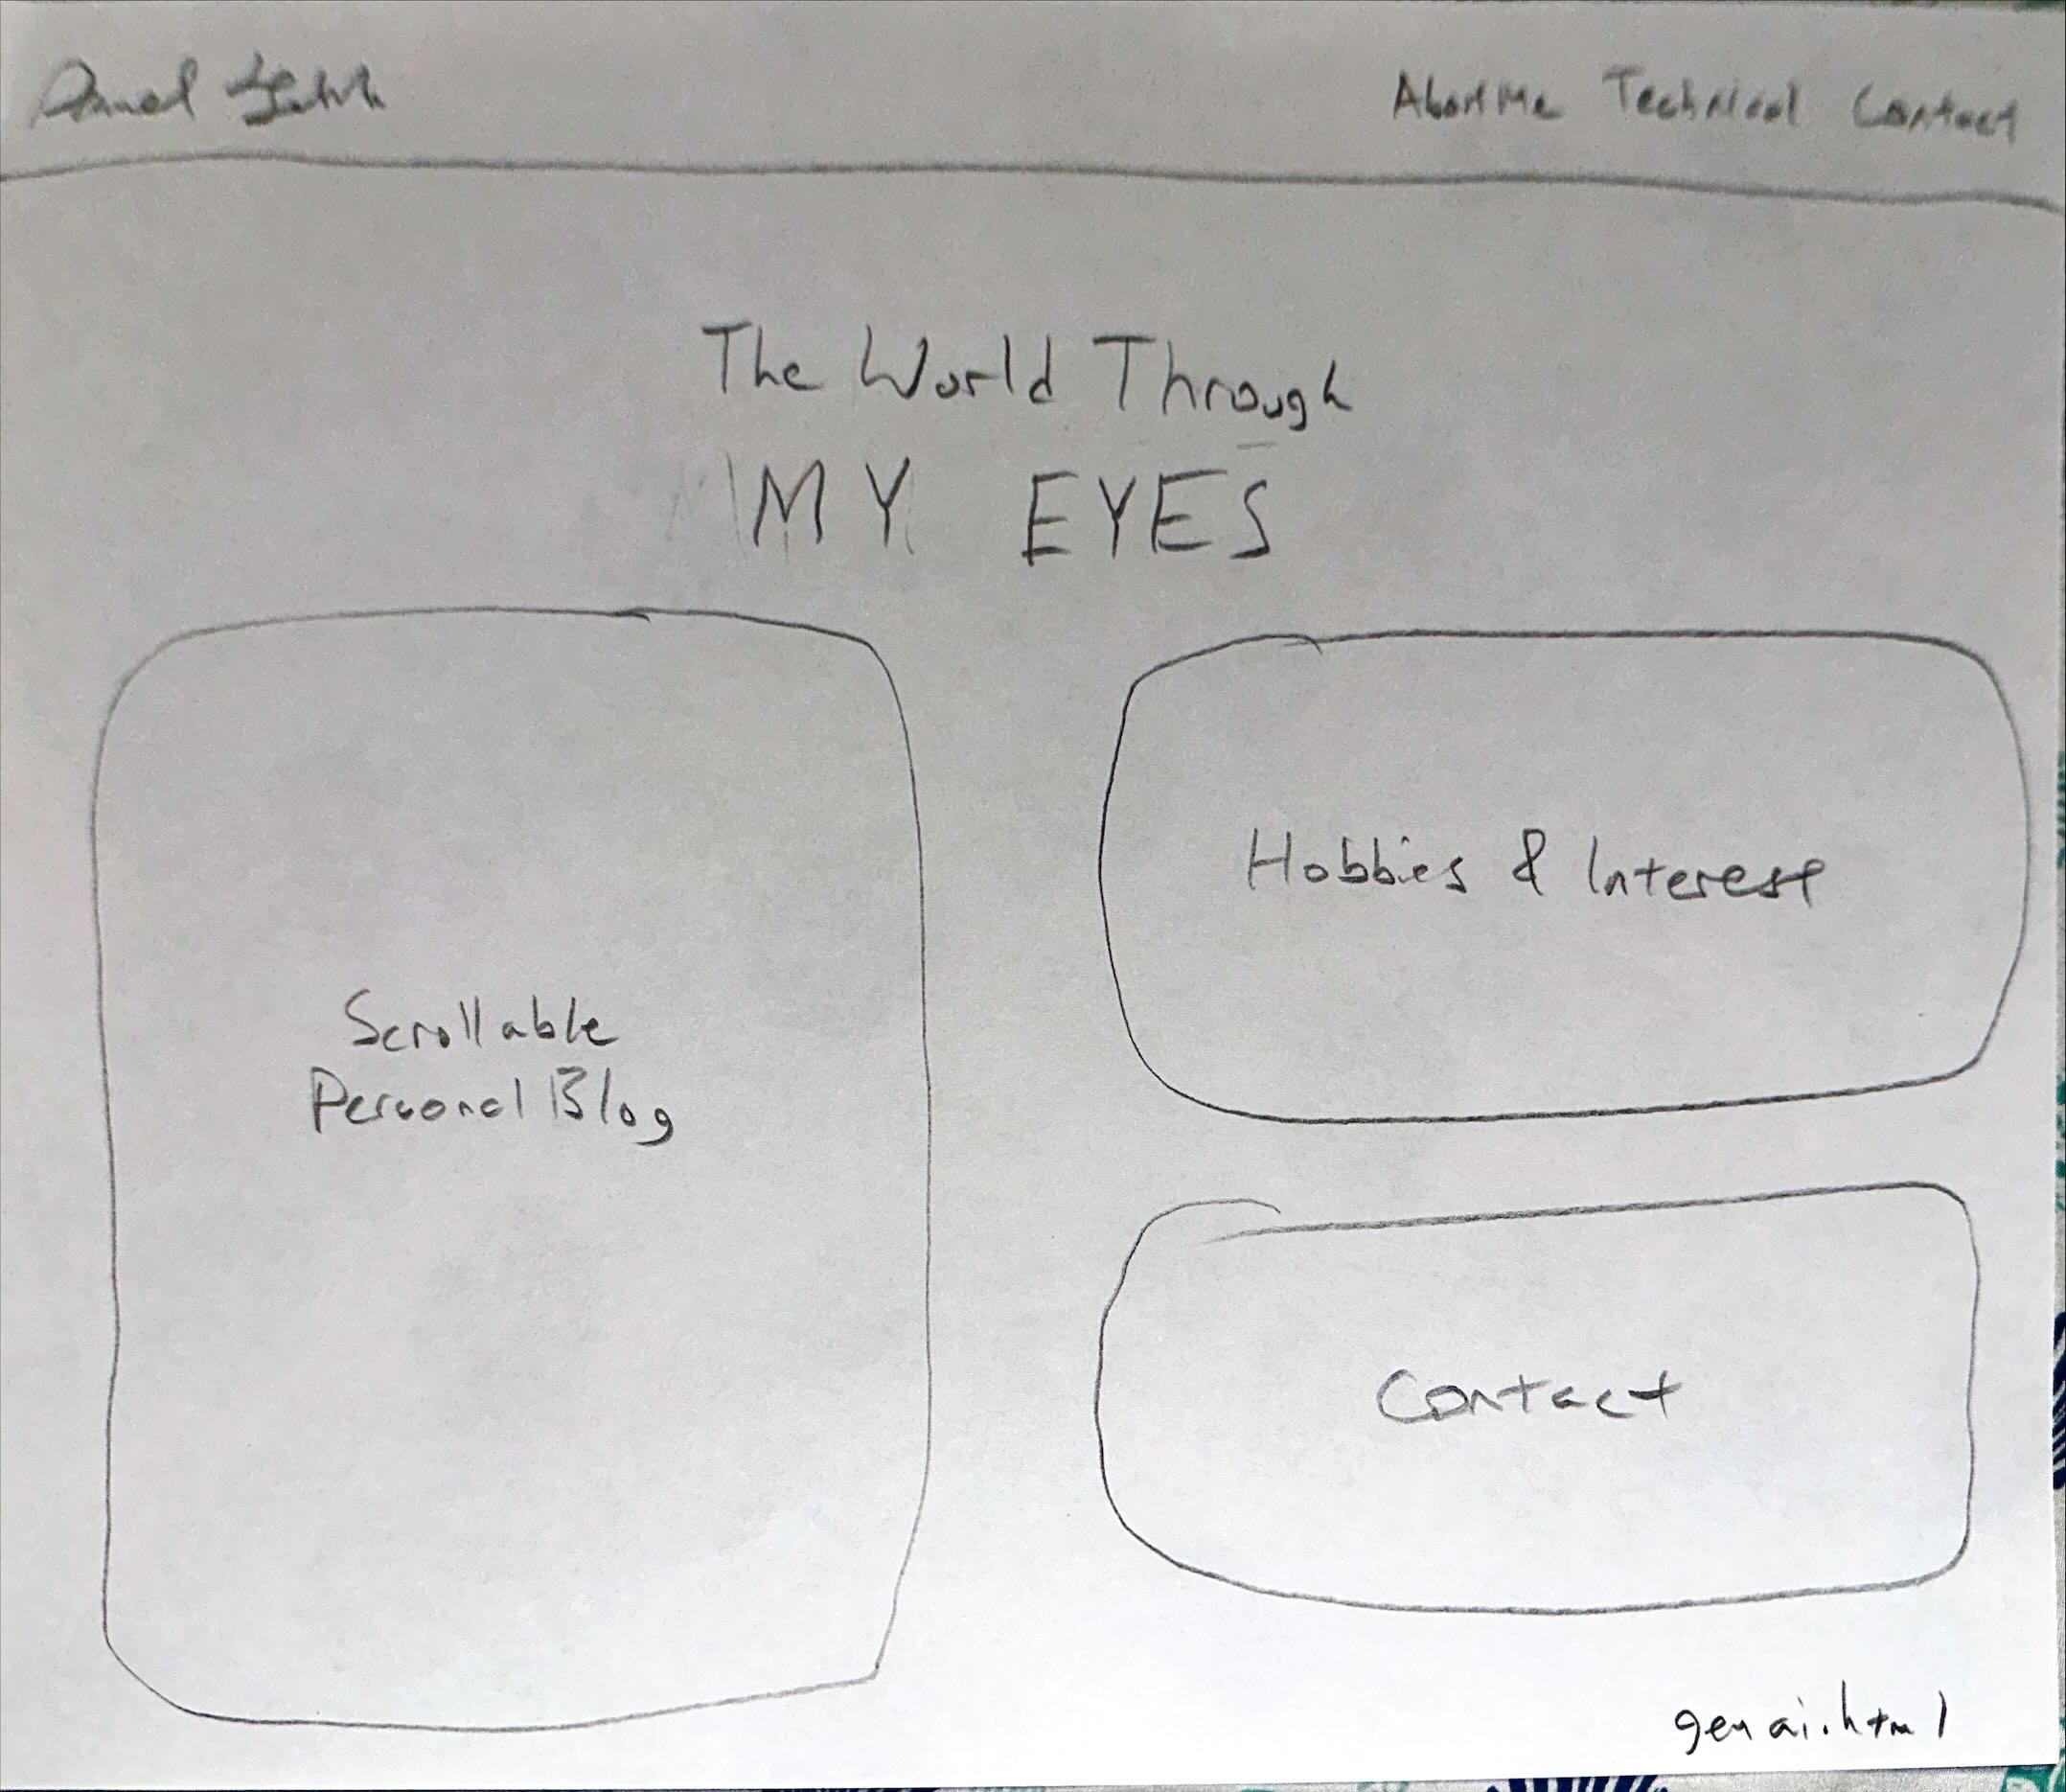 About Me Technical Contact
The World Through
MY EYES
Scrollable
Personal Blog
Hobbies & Interest
Contact
genai.html